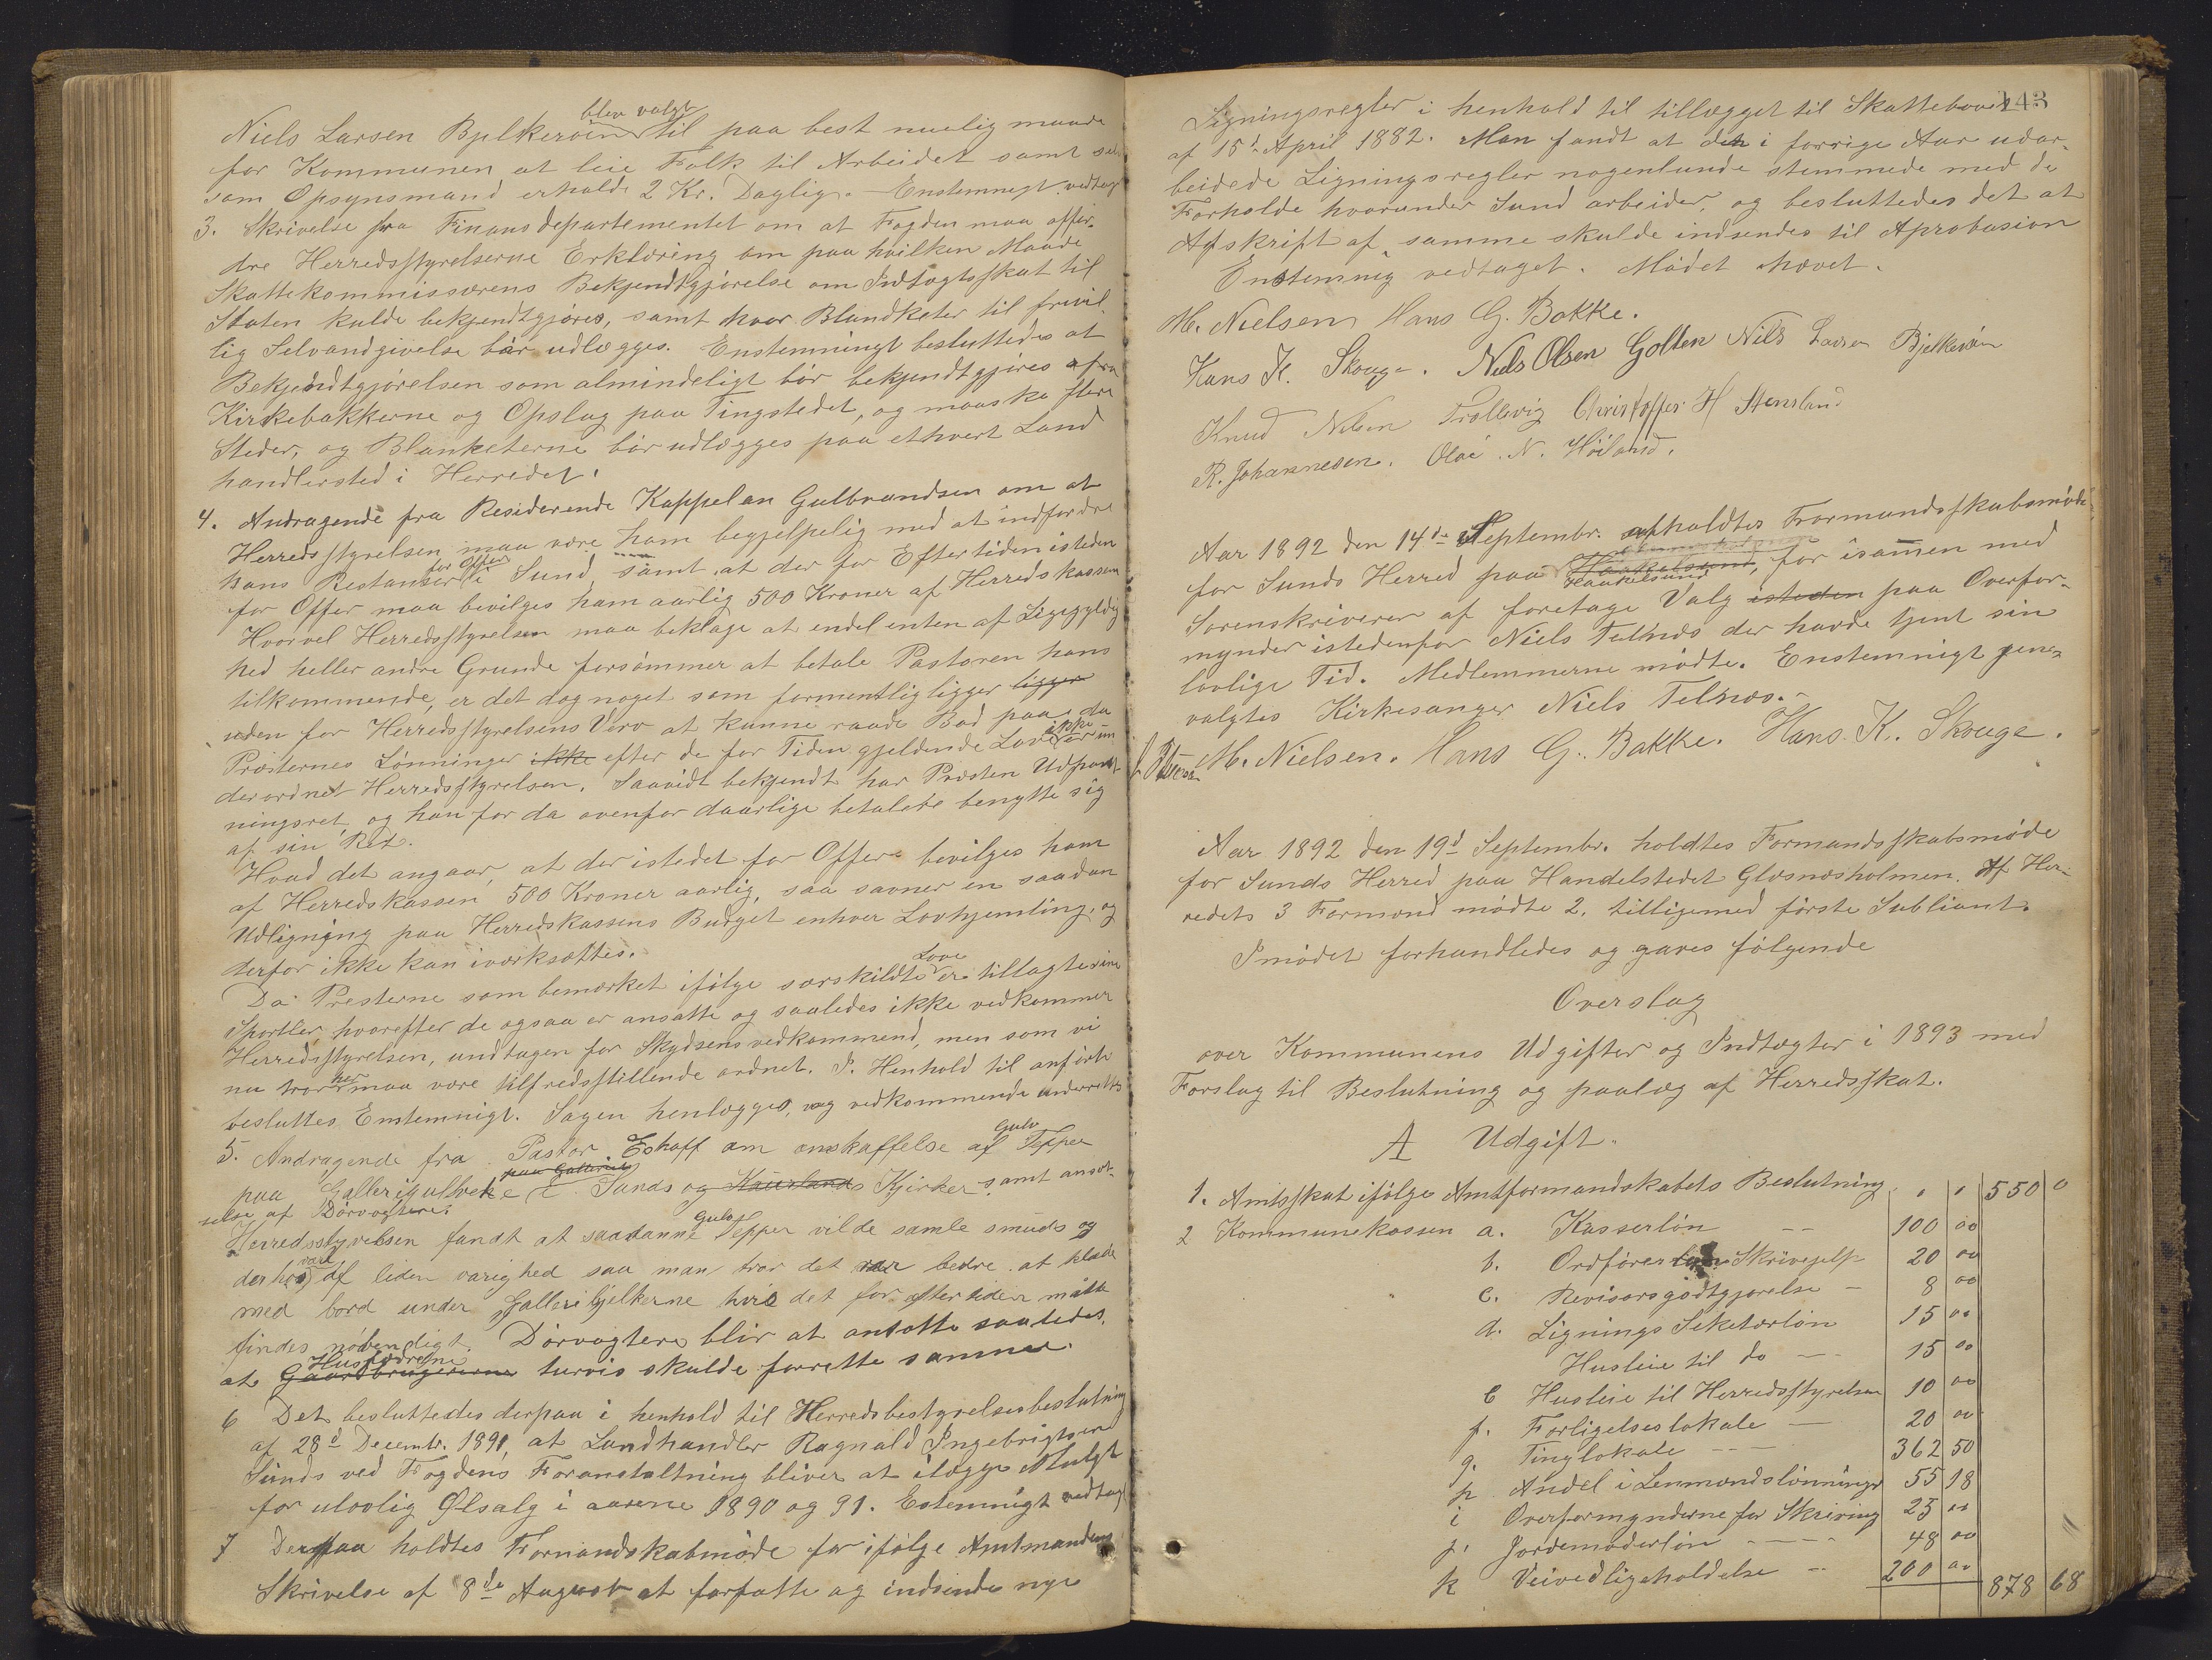 Niels Larsen Bjelkeröen blev valgt til paa best muelig maade
for Kommunen at leie Folk til Arbeidet samt selv
som Opsynsmand erholde 2 Kr. Daglig. Enstemmigt vedtag
3. Skrivelse fra Finansdepartementet om at Fogden maa affor-
dre Herredsstyrelserne Erklæring om paa hvilken Maade
Skattekommissærens Bekjendtgjörelse om Indtægtsskat til
Staten kulde bekjendtgjöres, samt hvor Blandketer til frivil-
lig Selvandgivelse bör udlægges. Enstemmingt besluttedes at
Bekjendtgjörelsen som almindeligt bör bekjendtgjöres afra
Kirkebakkerne og Opslag paa Tingstedet, og maaske flere
Steder, og Blanketerne bör udlægges paa ethvert Land
handlersted i Herredet.
4. Andragende fra Residerende Kappelan Gulbrandsen om at
Herredsstyrelsen maa være ham begjelpelig med at indfordre
hans Restanser for Offer i Sund, samt at der for Eftertiden isteden
for Offer maa bevilges ham aarlig 500 Kroner af Herredskassen
Hvorvel Herredsstyrelsen maa beklage at endel enten af Ligegyldig
hed heller andre Grunde forsömmer at betale Pastoren hans
tilkommende, er det dog noget som formentlig ligger ligger
uden for Herredsstyrelsens Værv at kunne raade Bod paa, da
Præsternes Lönninger ikke efter de for Tiden gjeldende Love ikke er un
derordnet Herredsstyrelsen. Saavidt bekjendt har Præsten Udpant-
ningsret, og han for da ovenfor daarlige betalere benytte sig
af sin Ret.
Hvad det angaar, at der istedet for Offer bevilges ham
af Herredskassen 500 Kroner aarlig, saa savner en saadan
Udligning paa Herredskassens Budget enhver Lovhjemling, og
derfor ikke kan iværksættes.
Da Presterne som bemærket ifölge særskildte Love er tillagte sine
Sportler, hvorefter de ogsaa er ansatte og saaledes ikke vedkommer
Herredsstyrelsen, undtagen for Skydsens vedkommend, men som vi
nu tror her maa være tilfredsstillende ordnet. I Henhold til anförte
besluttes Enstemnigt. Sagen henlægges, og vedkommende underrettes
5. Andragende fra Pastor Eshoff om anskaffelse af Gulv Tepper
paa Gallerigulvene paa Galleriet i Sunds og Kaurlands Kjirker samt ansæt-
telse af Dörvogtere.
Herredsstyrelsen fandt at saadanne Gulv Tepper vilde samle smuds og
derhos være af liden varighed saa man tror det var bedre at klæde
med bord under Galleribjelkerne hvis det for eftertiden måtte
findes nödvendigt. Dörvogtere blir at antatte saaledes.
at Gaardbrugererne Husfædrene turvis skulde forrette samme.
6 Det besluttedes derpaa i henhold til Herredsbestyrelsesbeslutning
af 28d Decembr. 1891, at Landhandler Ragnald Ingebrigtsen
Sunds ved Fogdens Foranstaltning bliver at ilægge Mulgt
for ulovlig Ölsalg i aarene 1890 og 91. Estemnigt vedtag
7 Derpaa holdtes Formandskabmöde for ifölge Amtmandens
Skrivelse af 8de August at forfatte og indsende nye
143
Ligningsregler i henhold til tillægget til Skatteloven
af 15d April 1882. Man fandt at den i forrige Aar udar-
beidede Ligningsregler nogenlunde stemmede med de
Forholde hvorunder Sund arbeider, og besluttedes det at
Afskrift af samme skulde indsendes til Aprobasion
Enstemnig vedtaget. Mödet hævet.
M. Nielsen Hans G. Bakke.
Hans K. Skouge. Nels Olsen Golten Nils Larsen Bjelkeröen
Knud Nilsen Trollevig Christoffer H Stensland
R. Johannesen. Olai N. Höiland.
Aar 1892 den 14de Septembr. afholdtes Formandsskabsmöde
for Sunds Herred paa Haakelsund, for isammen med
Haakelsund
Sorenskriveren af foretage Valg isteden paa Overfor-
mynder istedenfor Niels Telnæs der havde tjent sin
lovlige Tid. Medlemmerne mödte. Enstemnigt gjene-
valgtes Kirkesanger Niels Telnæs.
M. Nielsen. Hans G. Bakke. Hans K. Skouge.
Aar 1892 den 19d Septembr. holdtes Formandsskabsmöde
for Sunds Herred paa Handelstedet Glæsnæsholmen. Af Her-
redets 3 Formænd mödte 2, tilligemed förste Subliant.
I mödet forhandledes og gaves fölgende
Overslag
over Kommunens Udgifter og Indtægter i 1893 med
Forslag til Beslutning og paalæg af Herredsskat.
A Udgift.
1. Amtsskat ifölge Amtformandskabets Beslutning " " 550 0
2 Kommunekassen a. Kasserlön -- 100 00
b. Ordförer Skrivejelp 20 00
c. Revisorsgodtgjörelse - 8 00
d. Lignings Seketærlön 15 00
Husleie til do -- 15 00
e Husleie til Herredsstyrelsen 10 00
f. Forligelseslokale - 20 00
g. Tinglokale --- 362 50
h Andel i Lenmændslönninger 55 18
i Overformynderne for Skrivning 25 00
j. Jordemöderlön ---- 48 00
k Veivedligeholdelse -- 200 00 878 68